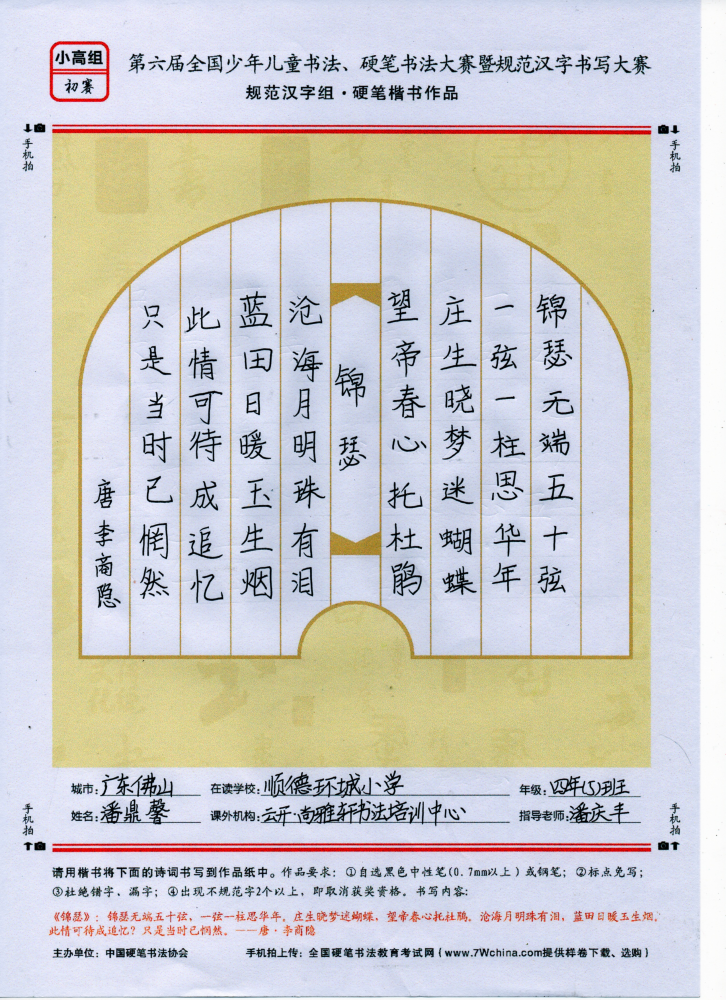 小高组
初赛
第六届全国少年儿童书法、硬笔书法大赛暨规范汉字书写大赛
规范汉字组·硬笔楷书作品
手机拍
手机拍
锦瑟无端五十弦
一弦一柱思华年
庄生晓梦迷蝴蝶
望帝春心托杜鹃
锦瑟
沧海月明珠有泪
蓝田日暖玉生烟
此情可待成追忆
只是当时已惘然
唐李商隐
城市:广东佛山 在读学校:顺德环城小学 年级:四年(5)班
姓名:潘鼎馨 课外机构:云开·尚雅轩书法培训中心 指导老师:潘庆丰
手机拍
手机拍
请用楷书将下面的诗词书写到作品纸中。作品要求:①自选黑色中性笔(0.7mm以上)或钢笔;②标点免写;
③杜绝错字、漏字;④出现不规范字2个以上,即取消获奖资格。书写内容:
《锦瑟》:锦瑟无端五十弦,一弦一柱思华年。庄生晓梦迷蝴蝶,望帝春心托杜鹃。沧海月明珠有泪,蓝田日暖玉生烟。
此情可待成追忆?只是当时已惘然。——唐·李商隐
主办单位:中国硬笔书法协会 手机拍上传:全国硬笔书法教育考试网(www.7Wchina.com提供样卷下载、选购)